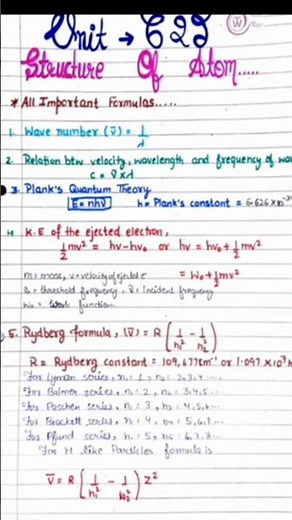 Unit → C2J
Structure Of Atom.....
* All Important Formulas.....
1. Wave number (ν̄) = 1/λ
2. Relation btw velocity, wavelength and frequency of wav
c = ν × λ
3. Plank's Quantum Theory
E = nhν h = Plank's constant = 6.626 × 10⁻³
4. K.E of the ejected election,
1/2 mv² = hν - hν₀ or hν = hν₀ + 1/2 mv²
m = mass, v = velocity of ejected e = W₀ + 1/2 mv²
ν₀ = threshold frequency, ν = Incident frequency
W₀ = Work function
5. Rydberg formula, (ν̄) = R [1/n₁² - 1/n₂²]
R = Rydberg constant = 109,677 cm⁻¹ or 1.097 × 10⁷
For Lyman series, n₁ = 1, n₂ = 2,3,4...
For Balmer series, n₁ = 2, n₂ = 3,4,5...
For Paschen series, n₁ = 3, n₂ = 4,5,6...
For Brackett series, n₁ = 4, n₂ = 5,6,7...
For Pfund series, n₁ = 5, n₂ = 6,7,8...
For H like Particles formula is
ν̄ = R [1/n₁² - 1/n₂²] Z²